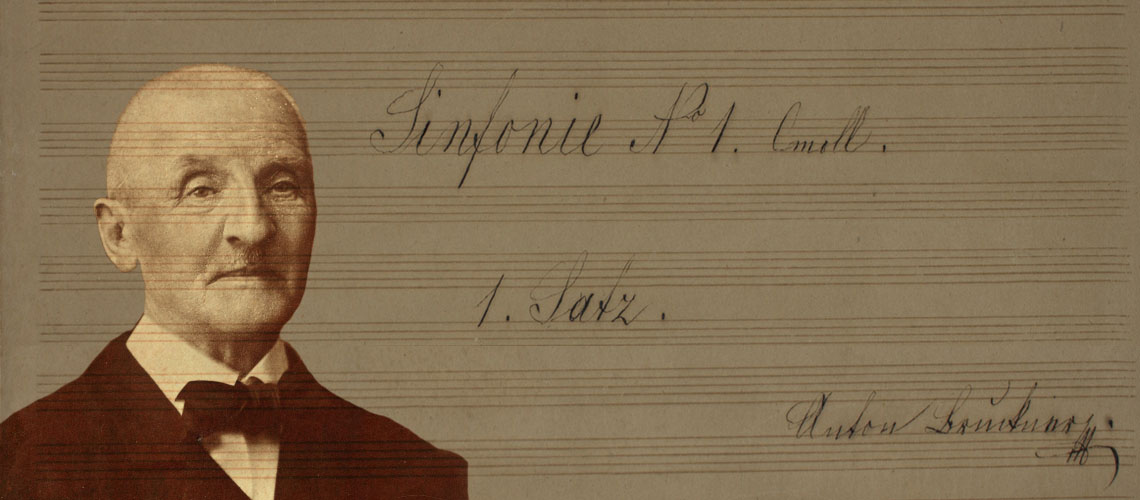 Sinfonie No 1. Cmoll.
1. Satz.
Anton Bruckner